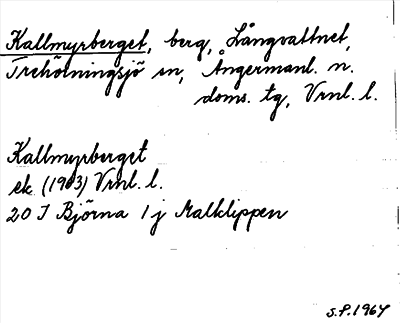 Kallmyrberget, berg, Långvattnet,
Trehörningsjö sn, Ångermanl. n.
doms. tg, Vrnl. l.
Kallmyrberget
ek. (1963) Vrnl. l.
20 I Björna 1 j Malklippen
S.P. 1967